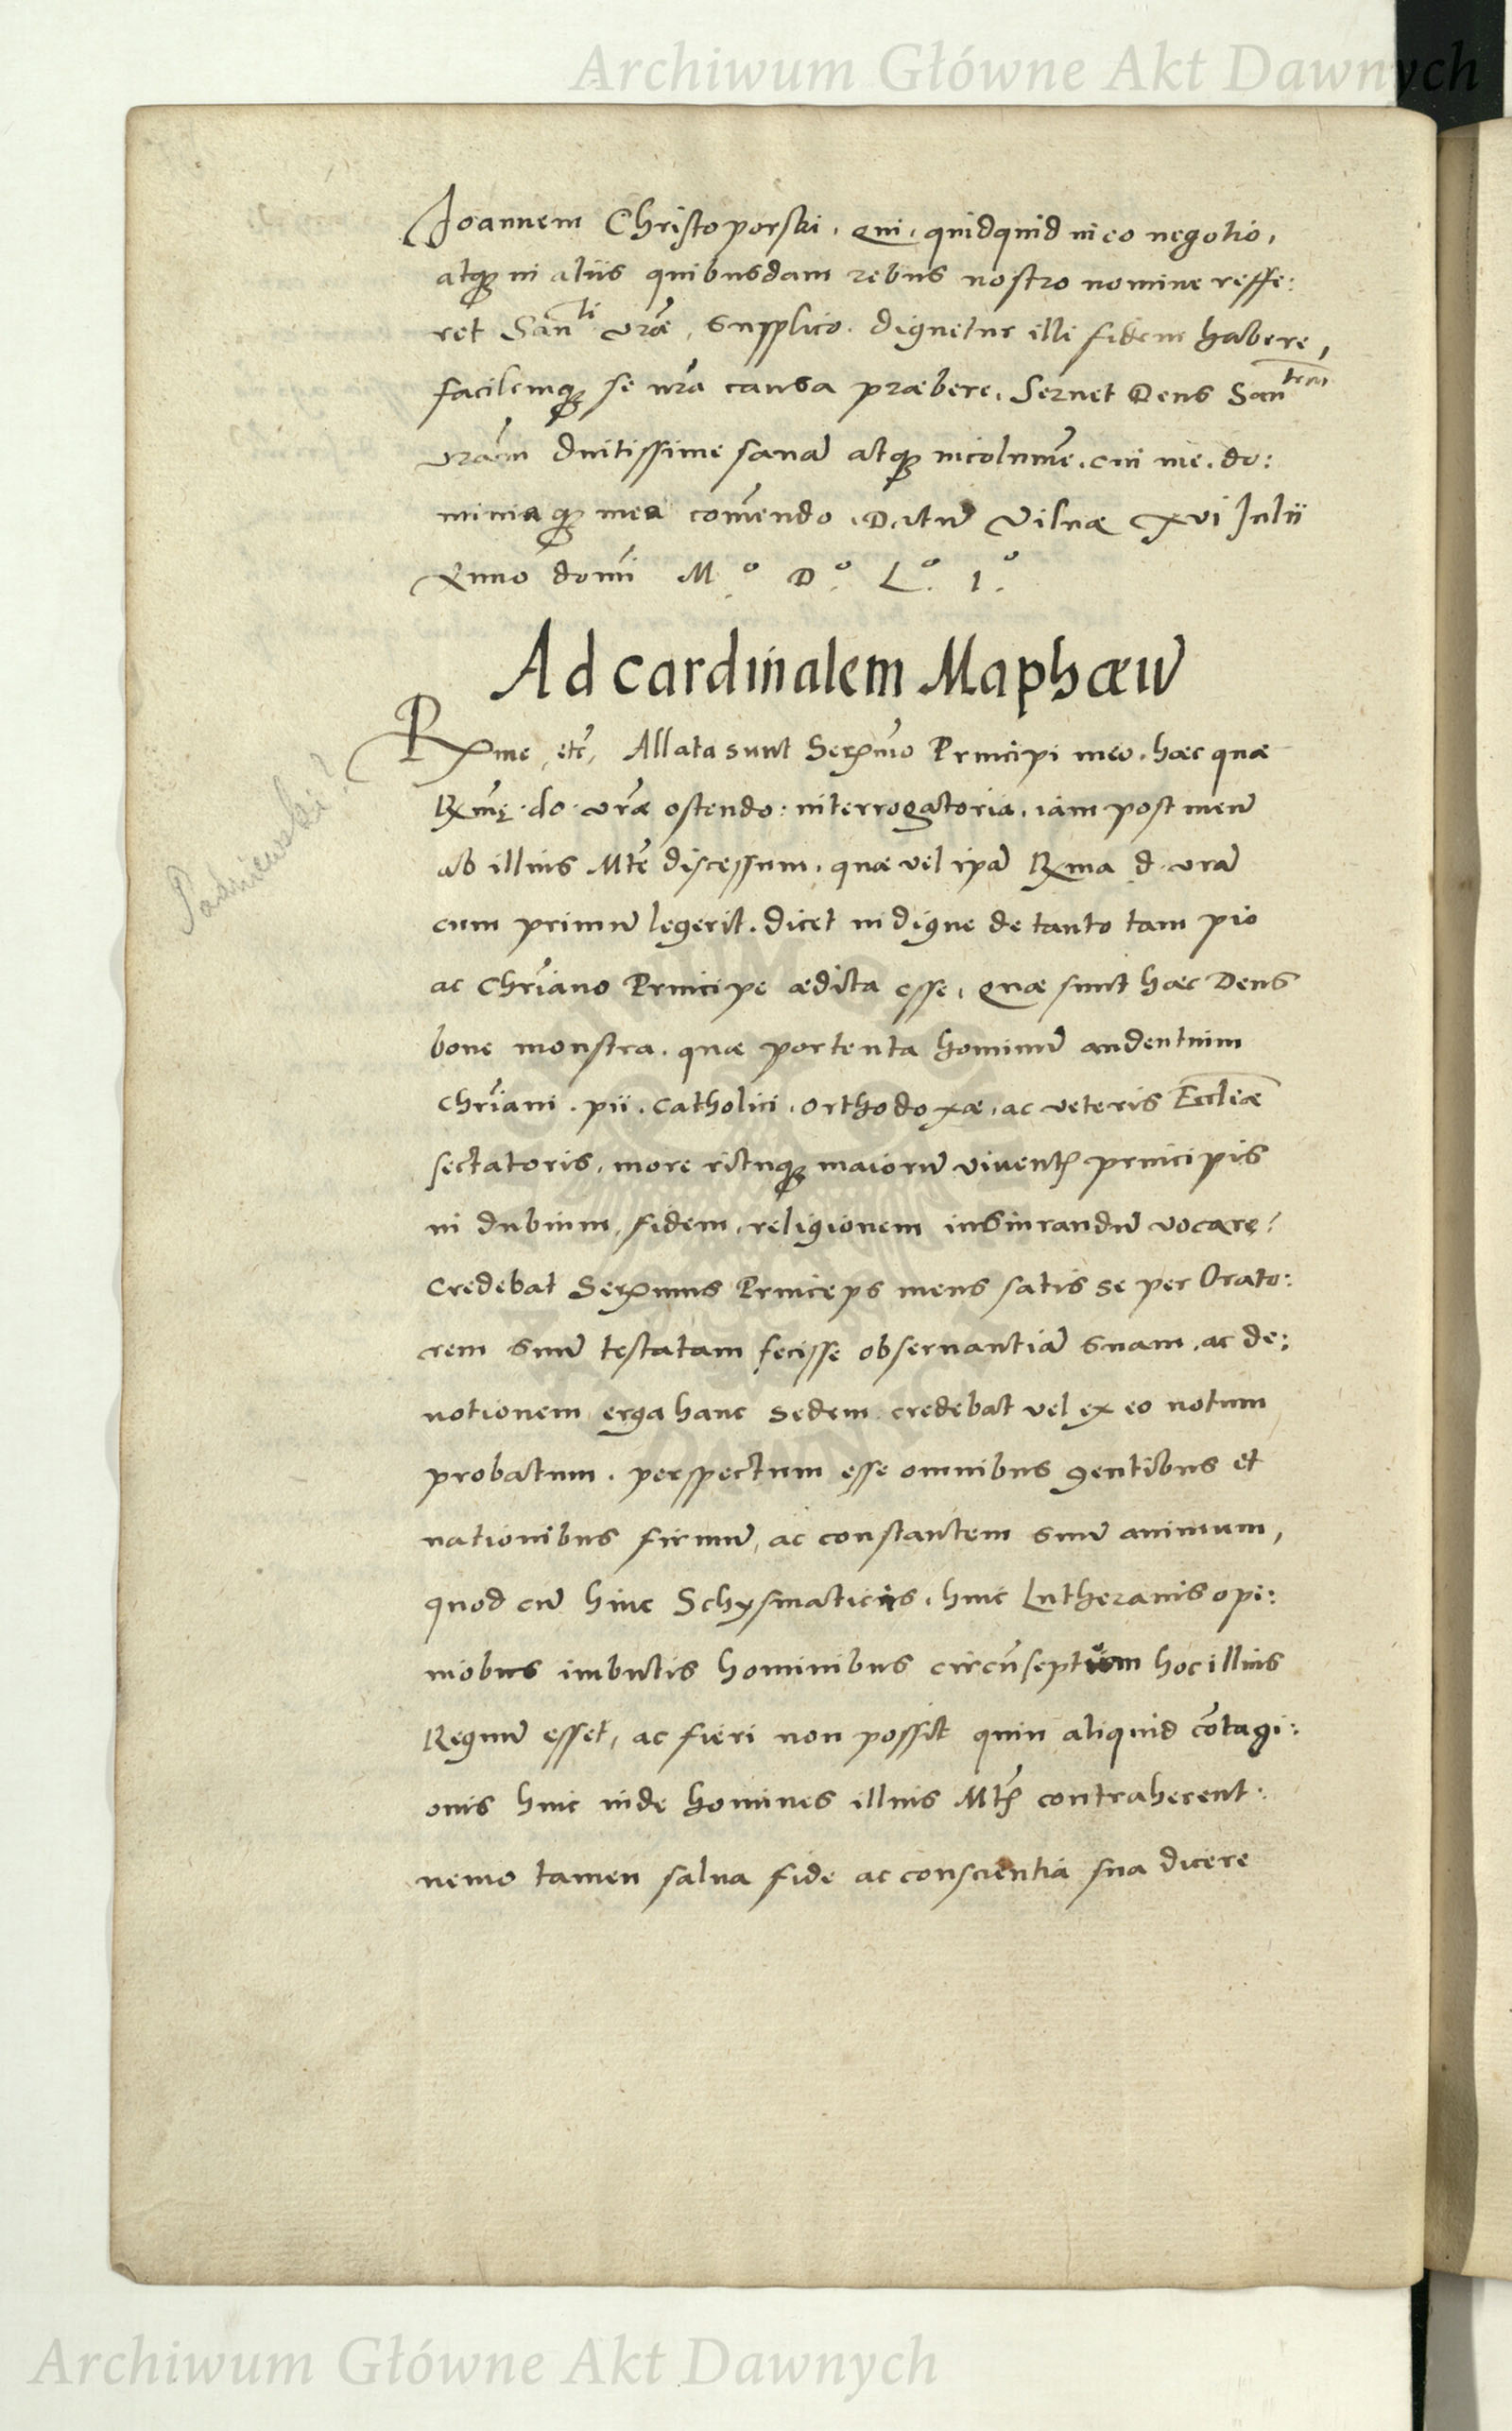 Archiwum Główne Akt Dawnych
Joannem Christoporski, qui, quidquid in eo negotio,
atq3 in aliis quibusdam rebus nostro nomine reffe:
ret San^ti vrãe, supplico. dignetur illi fidem habere,
facilemq3 se nrã causa præbere. Servet Deus San^tem
vrãm diutissime sanã atq3 incolumẽ. cui me. do:
miniaq3 mea comẽndo. Datũ Vilnæ XVI Julii
Anno domĩ M.º D.º L.º I.º
Ad cardinalem Maphæũ
Rxme, etc̃, Allata sunt Serxm̃o Principi meo. hæc quæ
Rxm̃ę. do. vrãe ostendo: interrogatoria, iam post meũ
ab illius Mtẽ discessum. quæ vel ipã Rxma d. vrã
cum primũ legerit. dicet indigne de tanto tam pio
ac Chrĩano Principe ædita esse, quæ sunt hæc Deus
bone monstra. quæ portenta hominũ audentium
Chrĩani. pii. catholici. orthodoxæ, ac veteris Ecclĩæ
sectatoris, more rituq3 maiorũ viventꝭ principis
in dubium, fidem, religionem iusiurandũ vocare?
Credebat Serxmus Princeps meus satis se per Orato:
rem suũ testatam fecisse observantiã suam, ac de:
votionem erga hanc sedem. credebat vel ex eo notum
probatum. perspectum esse omnibus gentibus et
nationibus firmũ, ac constantem suũ animum,
quod cũ hinc Schysmaticis, hinc Lutheranis opi:
niobus imbutis hominibus circũseptum hoc illius
Regnũ esset, ac fieri non possit quin aliquid cõtagi:
onis hinc inde homines illius Mtꝭ contraherent:
nemo tamen salva fide ac conscientia sua dicere
Padniewski?
Archiwum Główne Akt Dawnych